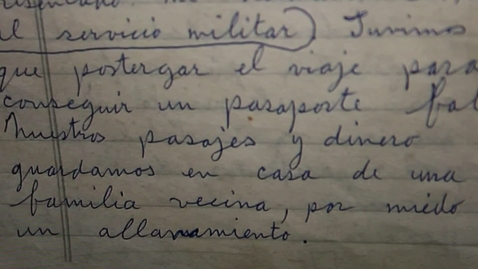 al servicio militar) Tuvimos
que postergar el viaje para
conseguir un pasaporte fal
Nuestros pasajes y dinero
guardamos en casa de una
familia vecina, por miedo
un allanamiento.